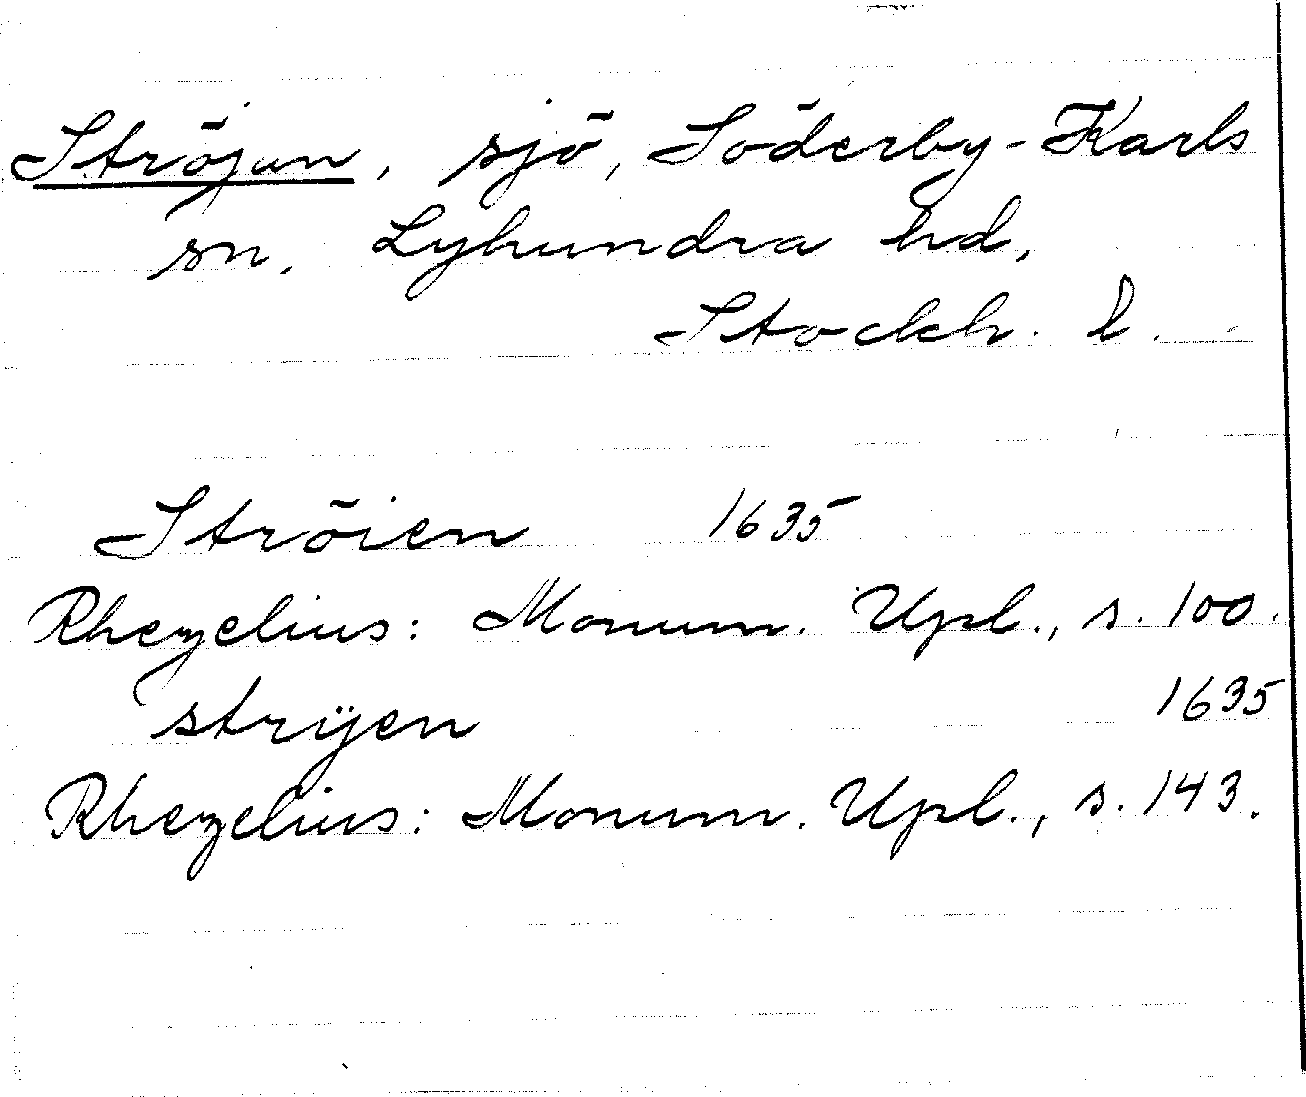 Ströjan, sjö, Söderby-Karls
sn, Lyhundra hd,
Stockh. l.
Ströien 1635
Rhezelius: Monum. Upl., s. 100.
strÿen 1635
Rhezelius: Monum. Upl., s. 143.